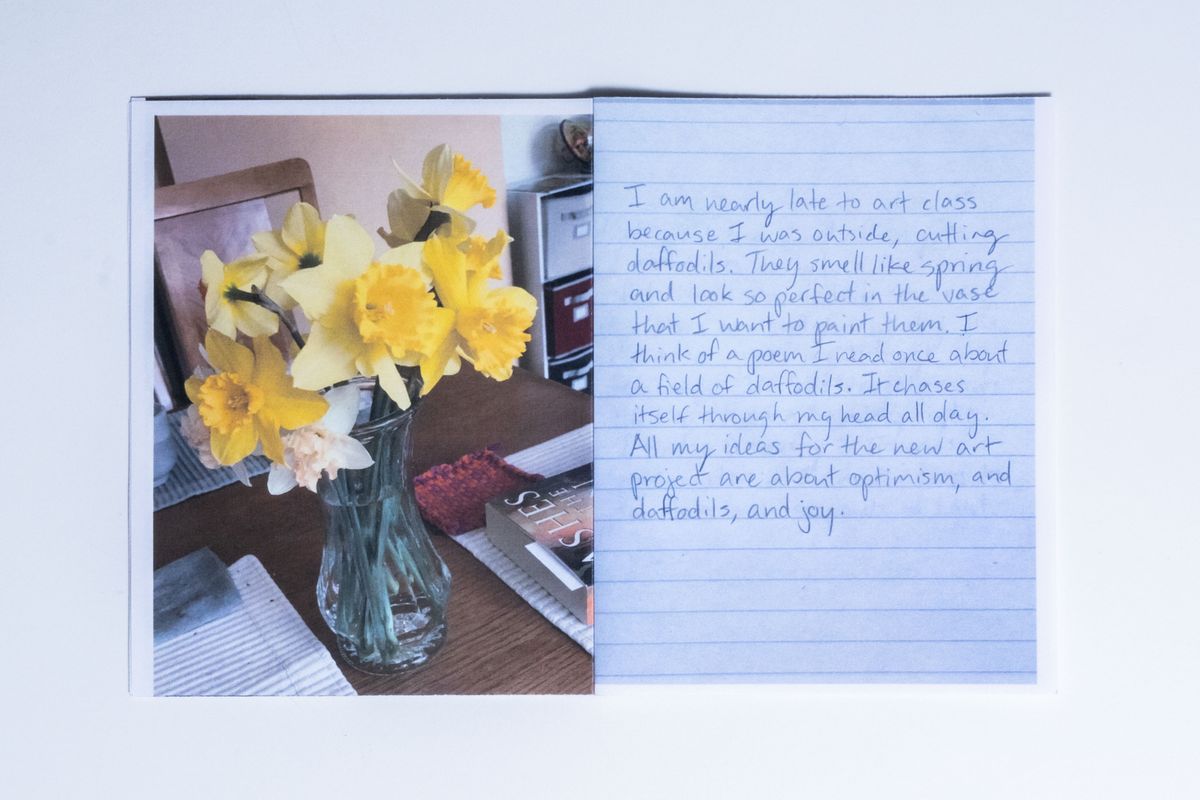 I am nearly late to art class
because I was outside, cutting
daffodils. They smell like spring
and look so perfect in the vase
that I want to paint them. I
think of a poem I read once about
a field of daffodils. It chases
itself through my head all day.
All my ideas for the new art
project are about optimism, and
daffodils, and joy.
THE
SHES